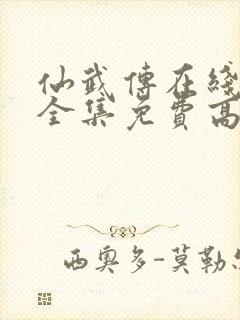 仙武傳在綫
全集免費高
西奧多-莫勒